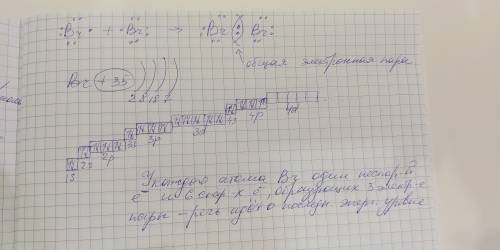 Br + Br → Br : Br
общая электронная пара
Br +35
2 8 18 7
1s 2s 2p 3s 3p 3d 4s 4p 4d
У каждого атома Br один неспар-й
ē и 6 спар-х ē, образующих 3 электр-е
пары – речь идёт о последн. энерг. уровне